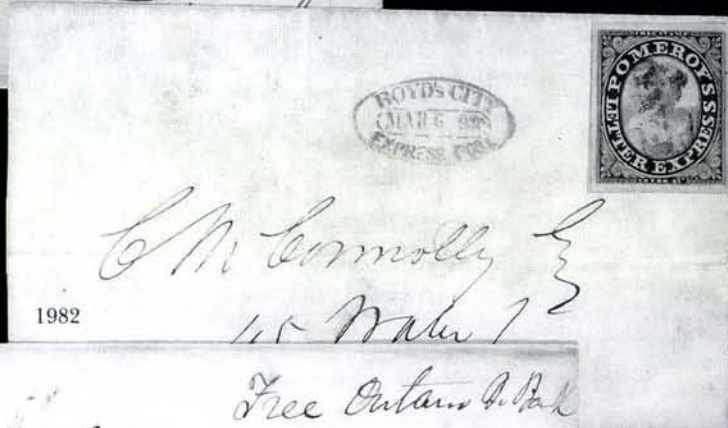 BOYD'S CITY
MAR 6
EXPRESS POST
POMEROY'S
LETTER EXPRESS
C M Connolly Esq
1982
45 Water
Free Ontario